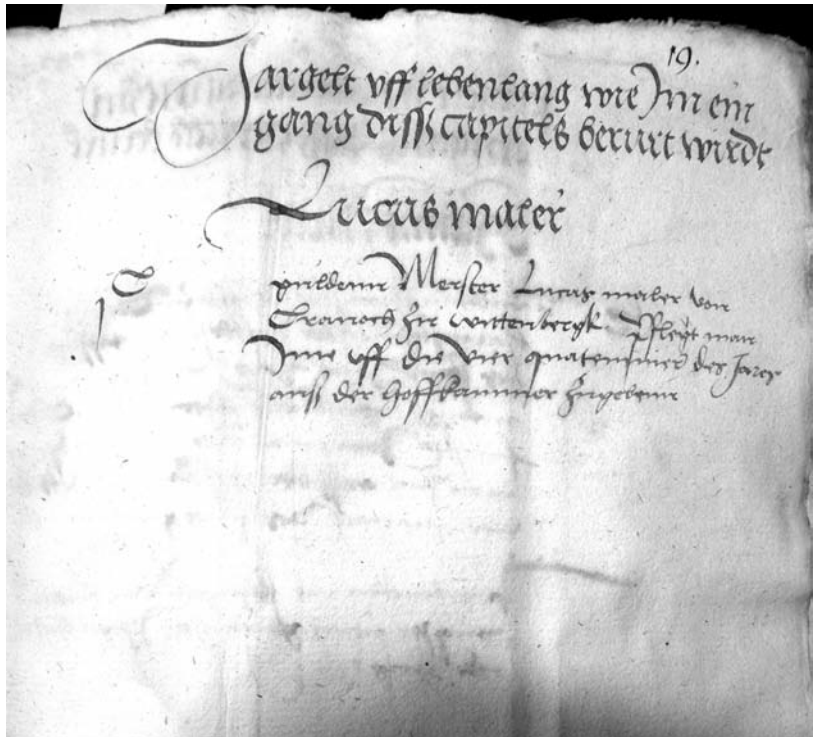 19.
Jargelt uff lebenlang wie Im ein
gang diss capitels berurt wirdt
Lucas maler
j C guldenn Meister Lucas maler von
Cranach zu wittenbergk Pflegt man
Ime uff die vier quatemmer des Jares
auß der hoffkammer zugebenn